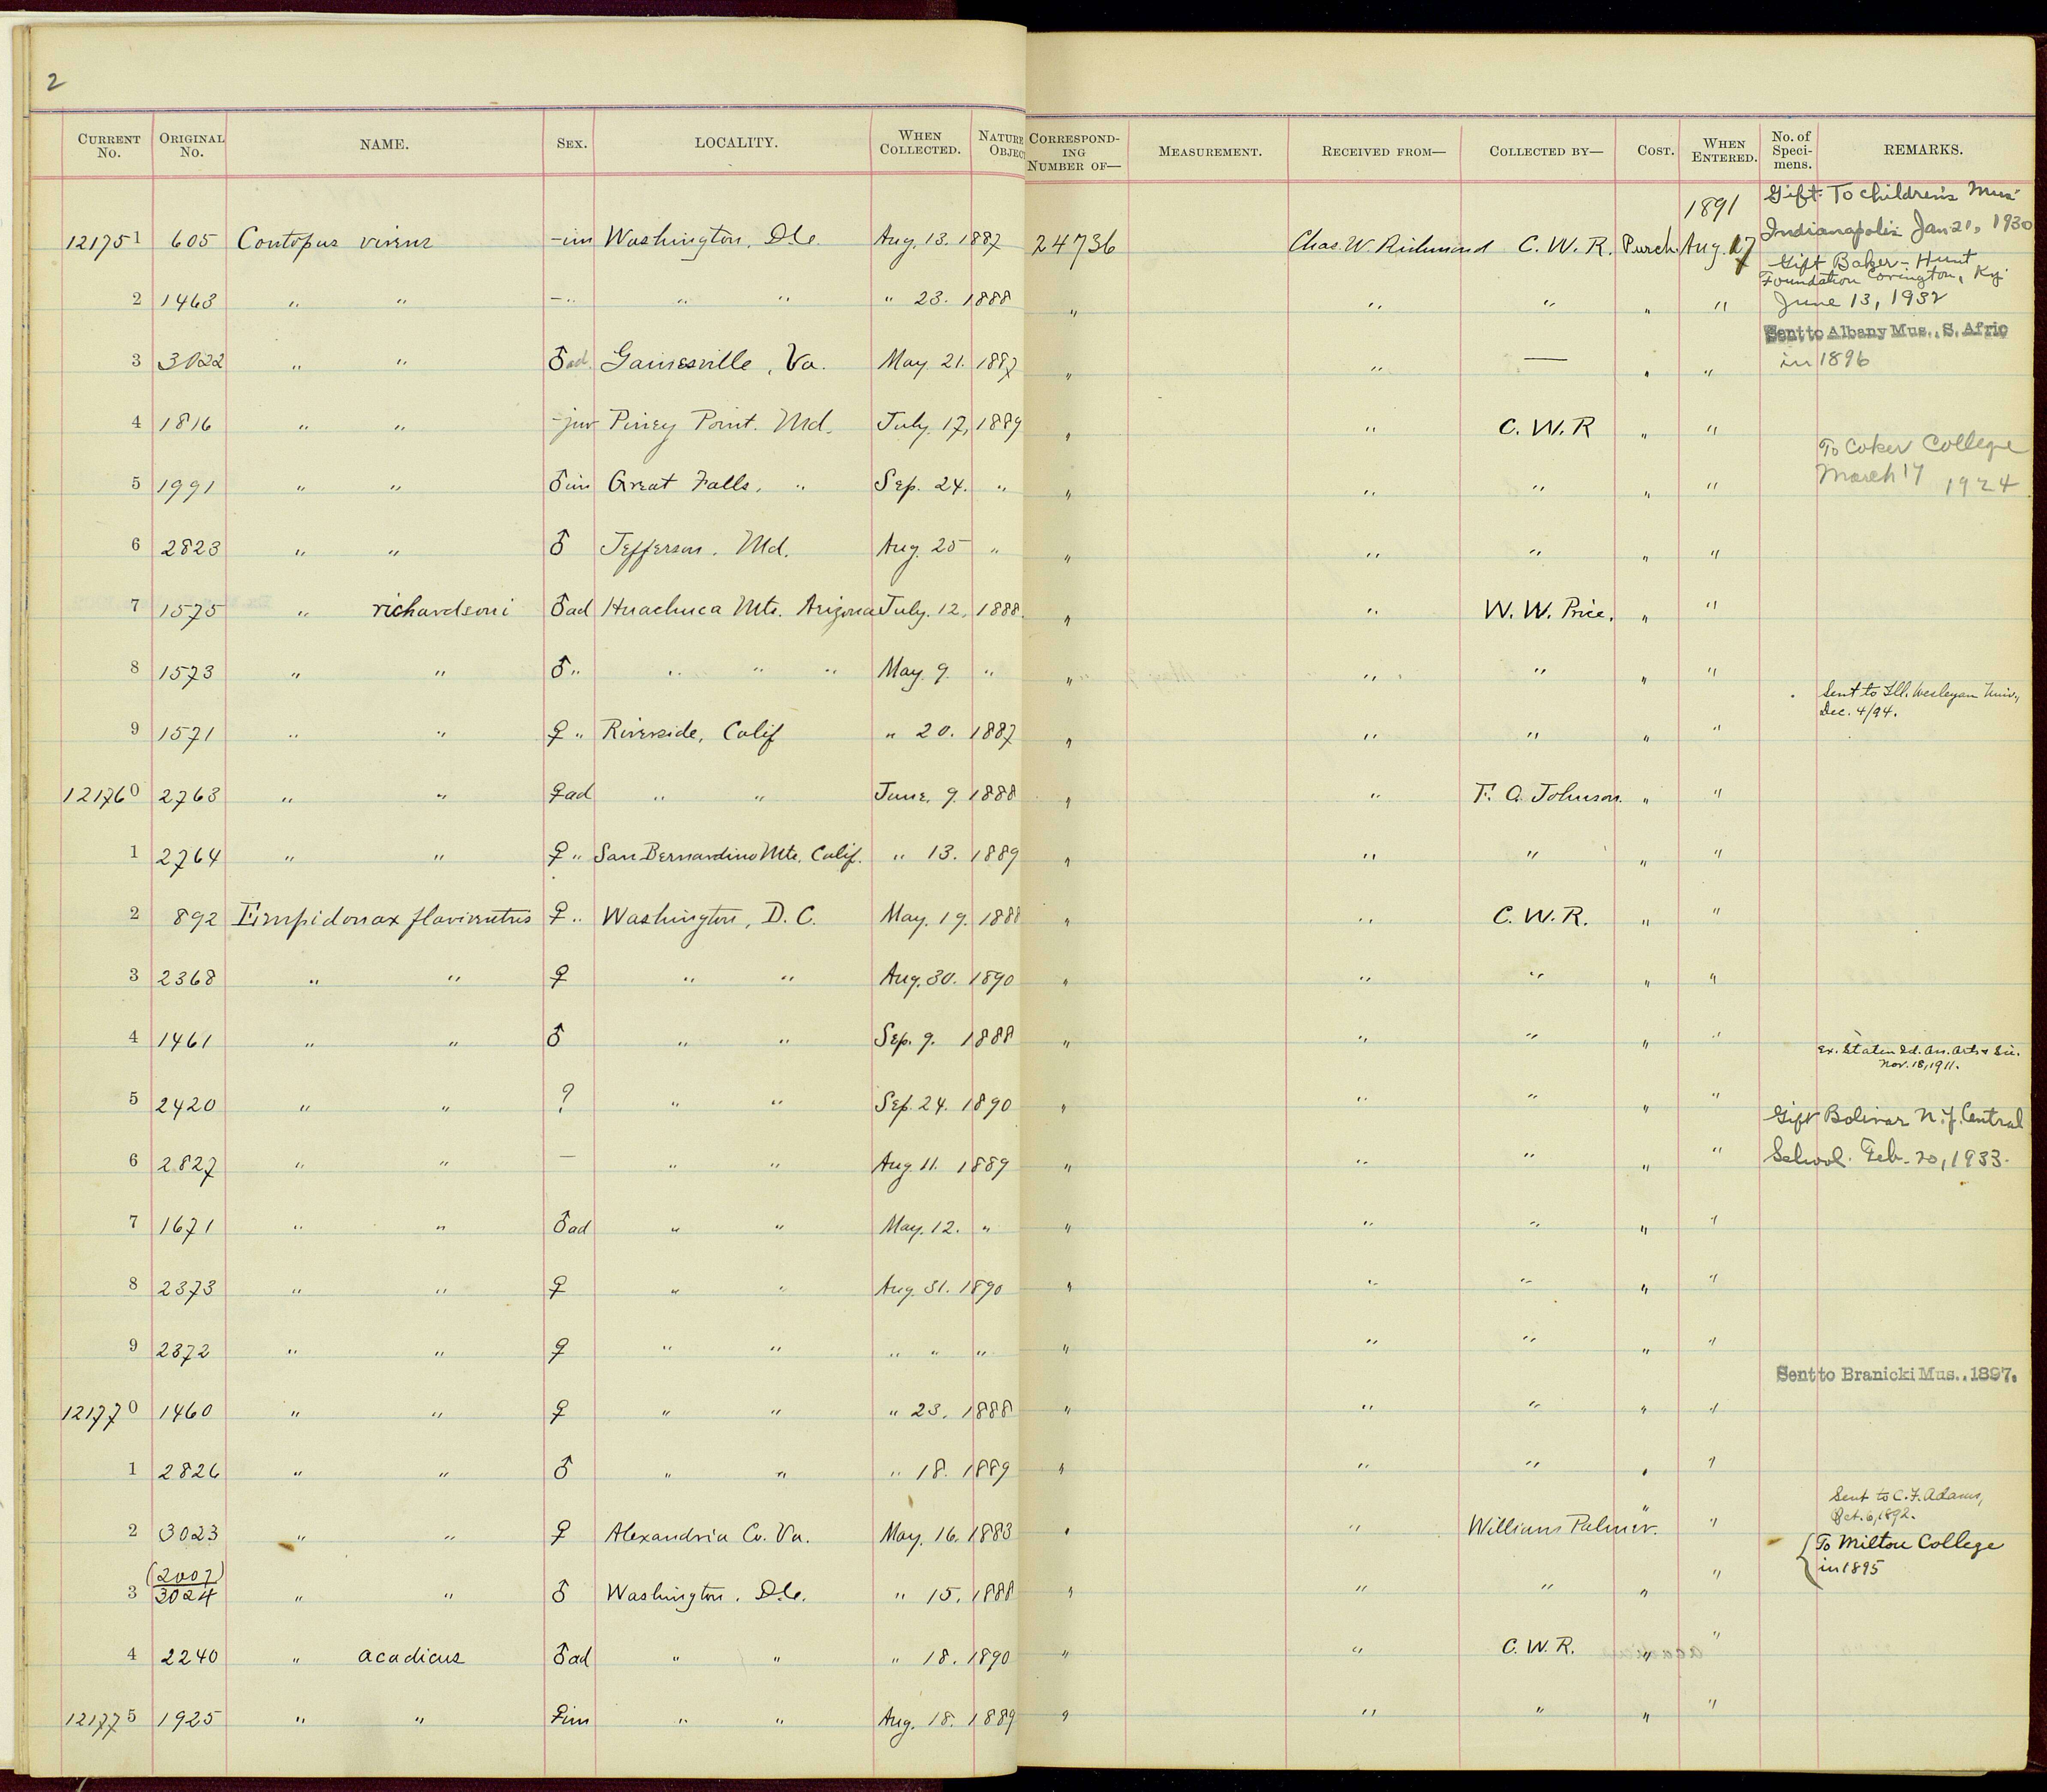 2
CURRENT No. ORIGINAL No. NAME. SEX. LOCALITY. WHEN COLLECTED. NATURE OBJEC CORRESPONDING NUMBER OF— MEASUREMENT. RECEIVED FROM— COLLECTED BY— COST. WHEN ENTERED. No. of Specimens. REMARKS.
1891 Gift To children's Mus.
121751 605 Contopus virens – im Washington, D.C. Aug. 13. 1887 24736 Chas. W. Richmond C. W. R. Purch. Aug. 17 Indianapolis Jan 21, 1930
Gift Baker-Hunt
Foundation Covington, Ky.
2 1463 " " – " " " " 23. 1888 " " " " " June 13, 1932
Sent to Albany Mus., S. Afric
3 3022 " " ♂ ad. Gainesville, Va. May 21. 1887 " " — " " in 1896
4 1816 " " – juv Piney Point. Md. July. 17, 1889 " " C. W. R " "
To Coker College
5 1991 " " ♂ im Great Falls, " Sep. 24. " " " " " " March 17 1924
6 2823 " " ♂ Jefferson. Md. Aug. 25 " " " " " "
7 1575 " richardsoni ♂ ad Huachuca Mts. Arizona July. 12. 1888. " " W. W. Price. " "
8 1573 " " ♂ " " " " May 9. " " " " " "
Sent to Ill. Wesleyan Univ.,
Dec. 4/94.
9 1571 " " ♀ " Riverside, Calif " 20. 1887 " " " " "
121760 2763 " " ♀ ad " " June. 9. 1888 " " F. A. Johnson. " "
1 2764 " " ♀ " San Bernardino Mts. Calif. " 13. 1889 " " " " "
2 892 Empidonax flaviventris ♀ " Washington, D. C. May. 19. 1888 " " C. W. R. " "
3 2368 " " ♀ " " Aug. 30. 1890 " " " " "
4 1461 " " ♂ " " Sep. 9. 1888 " " " " "
Ex. Staten Id. Ass. Arts & Sci.
Nov. 18, 1911.
5 2420 " " ? " " Sep. 24. 1890 " " " " "
Gift Bolivar N.Y. Central
6 2827 " " — " " Aug 11. 1889 " " " " " School. Feb. 20, 1933.
7 1671 " " ♂ ad " " May. 12. " " " " " "
8 2373 " " ♀ " " Aug. 31. 1890 " " " " "
9 2372 " " ♀ " " " " " " " " " "
Sent to Branicki Mus., 1897.
121770 1460 " " ♀ " " " 23. 1888 " " " " "
1 2826 " " ♂ " " " 18. 1889 " " " " "
Sent to C. F. Adams,
Oct. 6, 1892.
2 3023 " " ♀ Alexandria Co. Va. May. 16. 1883 " " William Palmer. " "
{ To Milton College
in 1895
(2007)
3 3024 " " ♂ Washington. D.C. " 15. 1888 " " " " "
4 2240 " acadicus ♂ ad " " " 18. 1890 " " C. W. R. " "
121775 1925 " " ♀ im " " Aug. 18. 1889 " " " " "